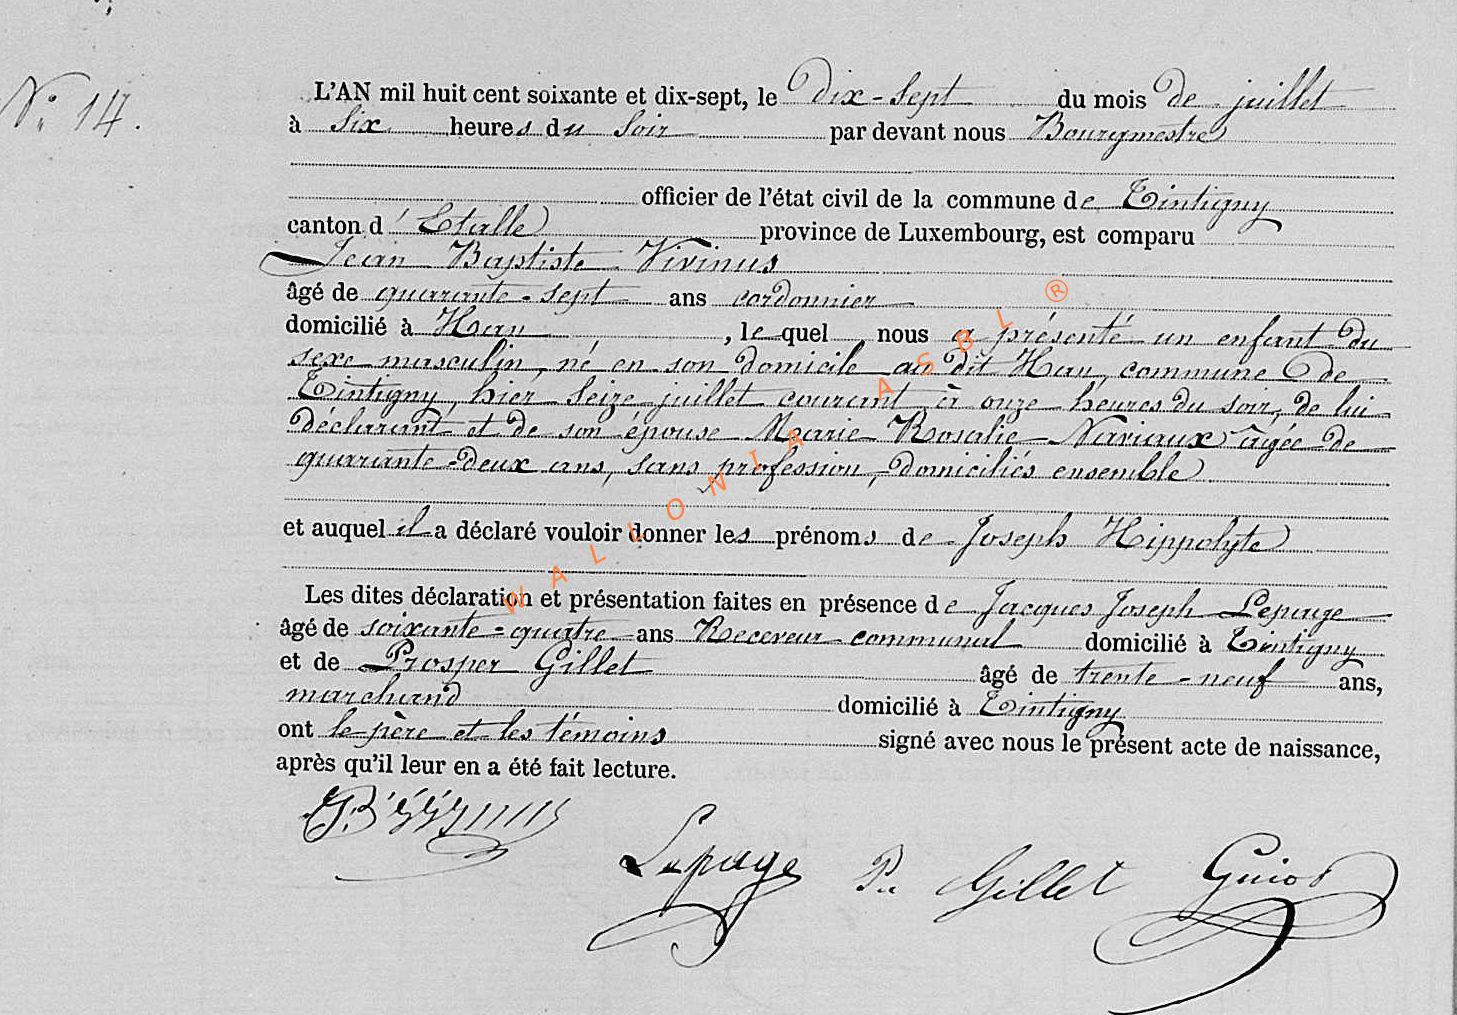 N° 14.
L'AN mil huit cent soixante et dix-sept, le dix-sept du mois de juillet
à six heures du soir par devant nous Bourgmestre
officier de l'état civil de la commune de Tintigny
canton d'Etalle province de Luxembourg, est comparu
Jean Baptiste Virinus
âgé de quarante-sept ans cordonnier
domicilié à Han, lequel nous a présenté un enfant du
sexe masculin, né en son domicile au dit Han, commune de
Tintigny, hier seize juillet courant à onze heures du soir, de lui
déclarant et de son épouse Marie Rosalie Naviaux âgée de
quarante-deux ans, sans profession, domiciliés ensemble
et auquel il a déclaré vouloir donner les prénoms de Joseph Hippolyte
Les dites déclaration et présentation faites en présence de Jacques Joseph Lepage
âgé de soixante-quatre ans Receveur communal domicilié à Tintigny
et de Prosper Gillet âgé de trente-neuf ans,
marchand domicilié à Tintigny
ont le père et les témoins signé avec nous le présent acte de naissance,
après qu'il leur en a été fait lecture.
Lepage Gillet
WALLONIA ASBL ®